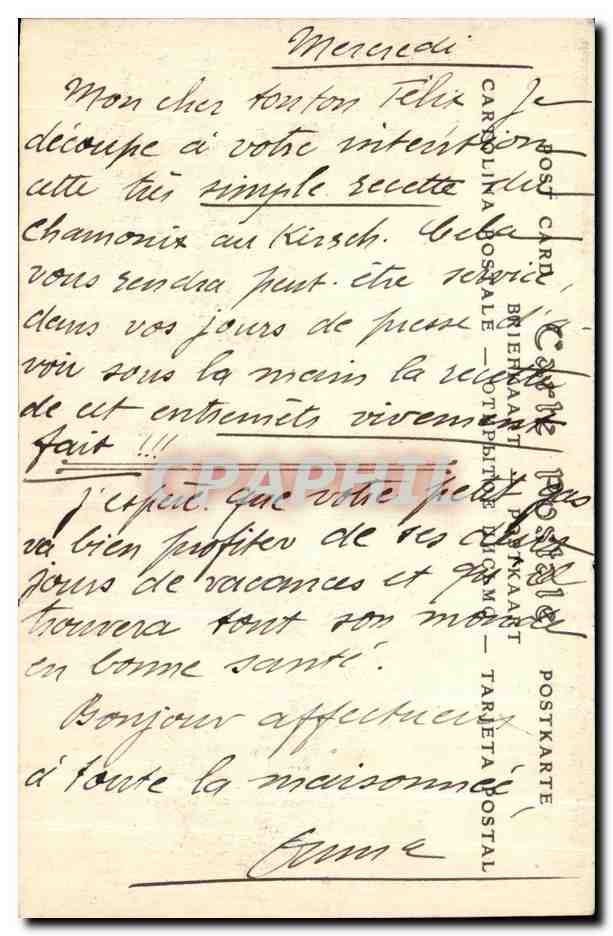 Mercredi
Mon cher tonton Félix Je
découpe à votre intention
cette très simple recette du
chamonix au Kirsch. Cela
vous rendra peut-être service,
dans vos jours de presse d'a-
voir sous la main la recette
de cet entremêts vivement
fait !!!
J'espère que votre petit gas
va bien profiter de ses
jours de vacances et
trouvera tout son monde
en bonne santé.
Bonjour affectueux
à toute la maisonnée,
CPAPHIL
POST CARD Carte Postale POSTKARTE
BRIEFKAART — POSTKAART
CARTOLINA POSTALE — ОТКРЫТОЕ ПИСЬМО — TARJETA POSTAL